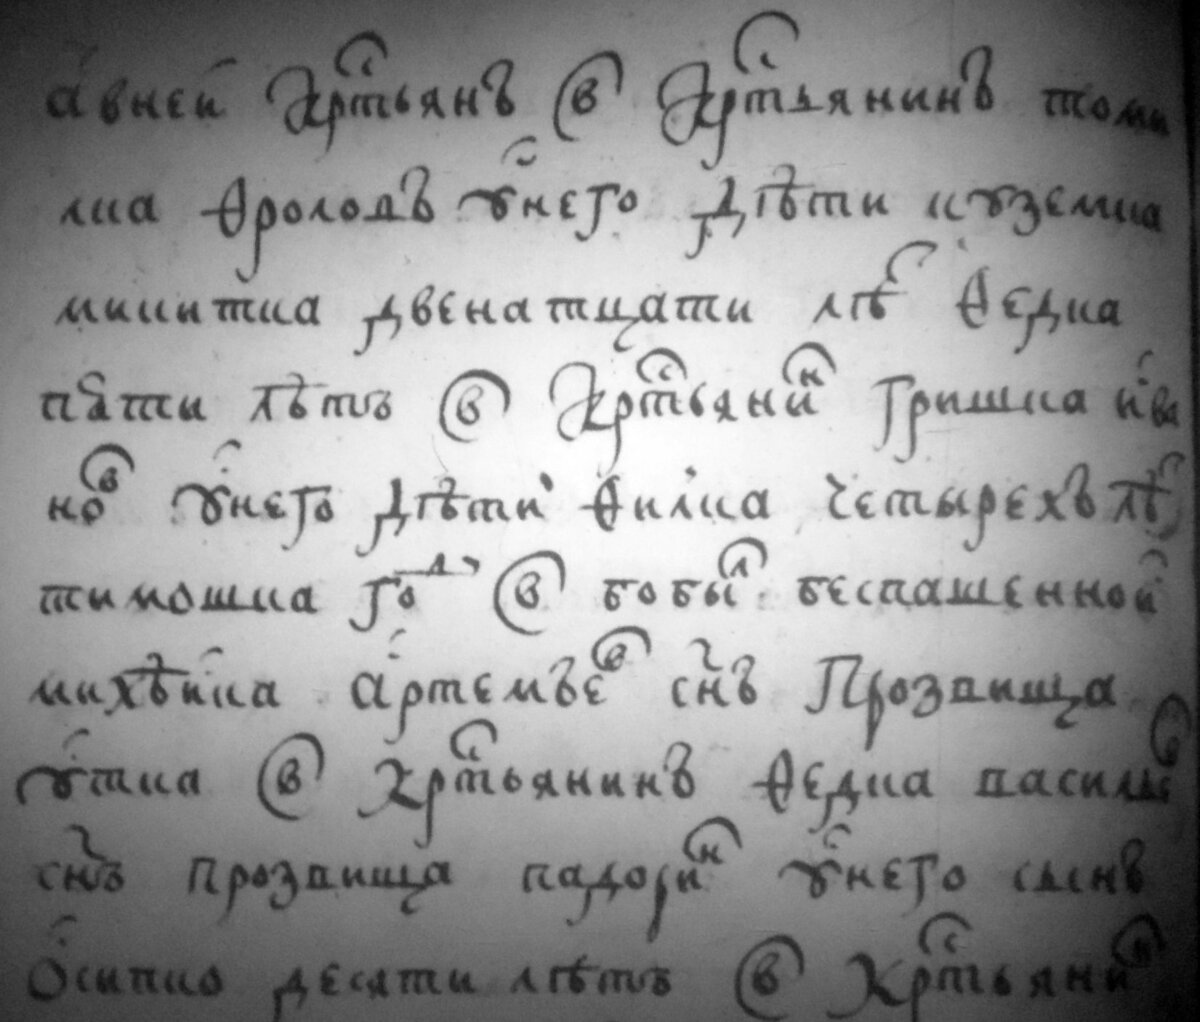 а в ней хрⷭ҇тьянъ (в) хрⷭ҇тьянинъ томи
лка ѳроловъ ꙋ него дѣти кꙋземка
микитка двенатцати лѣⷮ ѳедка
пѧти лѣтъ (в) хрⷭ҇тьяниⷩ гришка ива
ноⷡ ꙋ него дѣти ѳилка четырехъ лѣⷮ
тимошка гоⷣ (в) бобыⷧ беспашенной
михѣйка артемьеⷡ сн҃ъ прозвища
ꙋтка (в) хрⷭ҇тьянинъ ѳедка васильеⷡ
сн҃ъ прозвища вадориⷩ ꙋ него сынъ
осипко десяти лѣтъ (в) хрⷭ҇тьяниⷩ